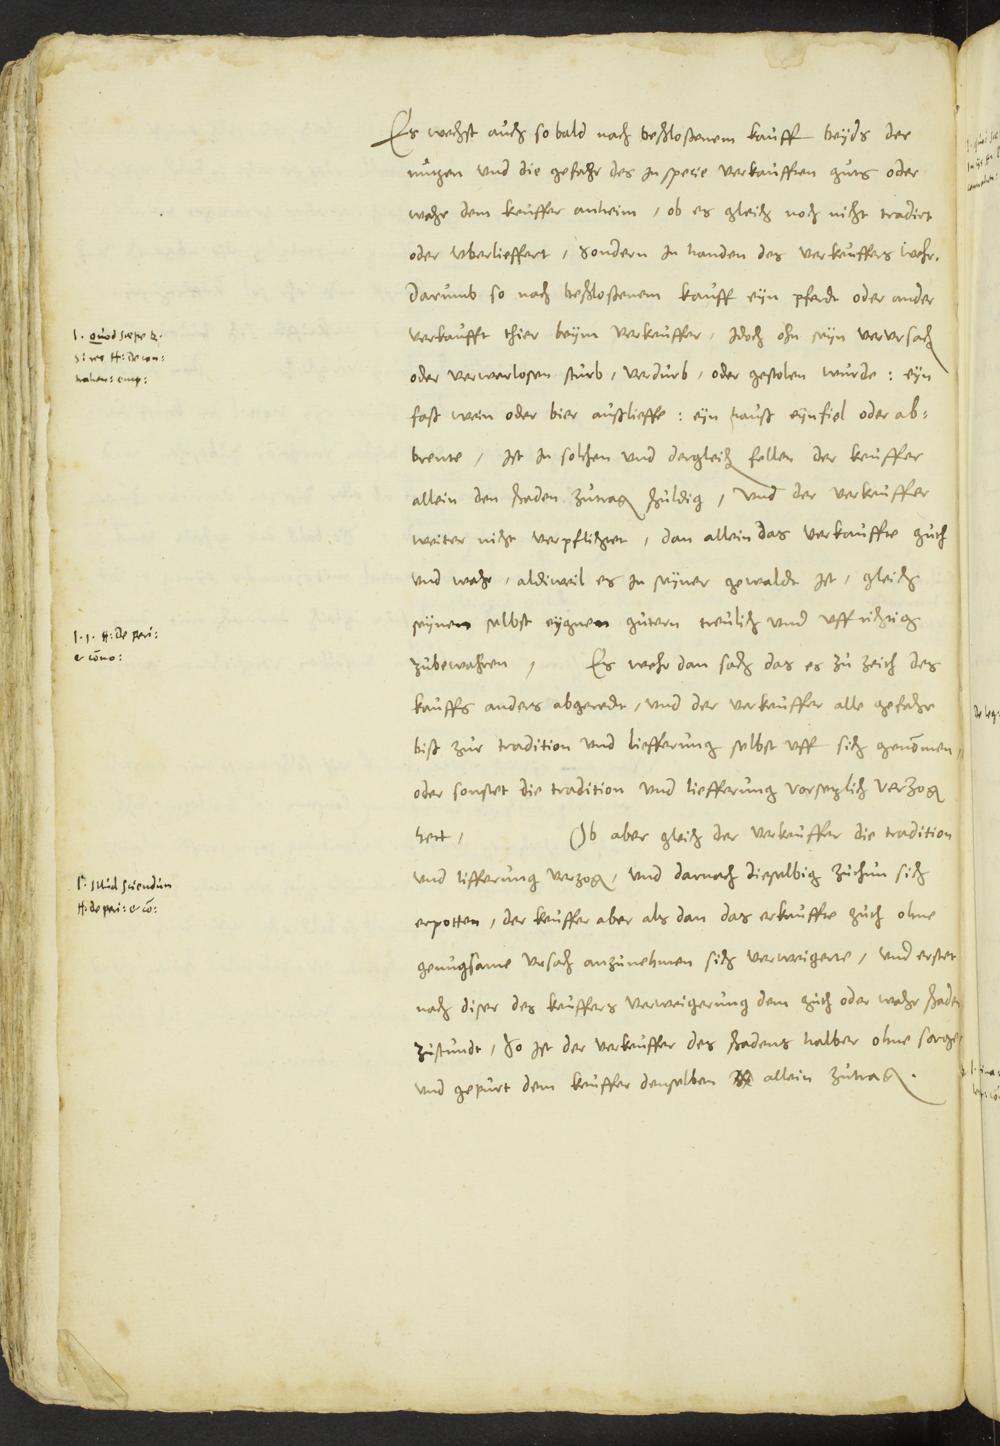 Es wechst auch so bald nach beschlossenem kauff beyds der
nutzen vnd die gefahr des in specie verkaufften guts oder
wahr dem keuffer anheim / ob es gleich noch nicht tradirt
oder vberlieffert / sondern in handen des verkeuffers wehr.
Darumb so nach beschlossenem kauff eyn pferdt oder ander
verkaufft thier beym verkeuffer / Idoch ohn seyn vervrsach
oder verwarlosen sturb / verdurb / oder gestolen wurde : eyn
fass wein oder bier ausslieffe : eyn hauss eynfiel oder ab:
brente / ist in solchen vnd dergleich fellen der keuffer
allein den schaden zutrag schuldig / vnd der verkeuffer
weiter nicht verpflichtet / dan allein das verkauffte guth
vnd wahr / aldiweil es in seyner gewaldt ist / gleich
seynem selbst eygnem gutern treulich vnd vffrichtig
zubewahren / Es wehr dan sach das es zu zeith des
kauffs anders abgeredt / vnd der verkeuffer alle gefahr
biss zur tradition vnd liefferung selbst vff sich genōmen /
oder sonstet die tradition vnd liefferung vorsetzlich verzog
hett / Ob aber gleich der verkeuffer die tradition
vnd lifferung verzog / vnd darnach dieselbig zuthun sich
erpotten / der keuffer aber als dan das erkauffte guth ohne
genugsame vrsach anzunehmen sich verweigerte / vnd erstet
nach diser des keuffers verweigerung dem guth oder wahr schaden
zustundt / So ist der verkeuffer des schadens halber ohne sorge
vnd gepurt dem keuffer denselben allein zutrag.
l. quod saepe §.
si res ff: de con:
trahen: emp:
l. 1. ff: De peri:
et cōmo:
l. illud sciendum
ff: de peri: et cō: